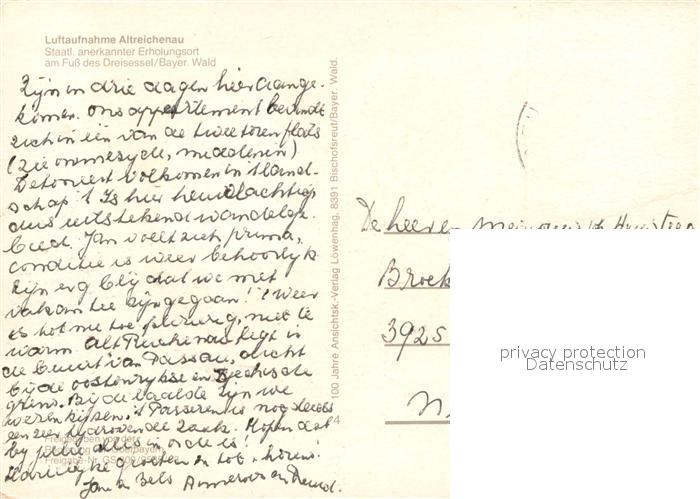 Luftaufnahme Altreichenau
Staatl. anerkannter Erholungsort
am Fuß des Dreisessel/Bayer. Wald
Zijn in drie dagen hier aange-
komen. Ons appartement bevindt
zich in één van de twee torenflats
(zie ommezijde, midden in)
Detoneert volkomen in 't land-
schap. 't Is hier heuvelachtig
dus uitstekend wandelge-
bied. Jan voelt zich prima,
conditie is weer behoorlijk
Zijn erg blij dat we met
vakantie zijn gegaan! 't Weer
is tot nu toe plezierig, niet te
warm. Altreichenau ligt in
de buurt van Passau, dicht
bij de oostenrijkse en Tjechische
grens. Bij de laatste zijn we
wezen kijken. 't Passeren is nog steeds
een zeer tijdrovende zaak. Hopen dat
bij jullie alles in orde is!
Hartelijke groeten en tot horens!
Jan
Freigegeben von der
Freigabe-Nr. GS
100 Jahre Ansichtsk.-Verlag Löwenhag, 8391 Bischofsreut/Bayer. Wald.
De heer en
Broek
3925
N
privacy protection
Datenschutz